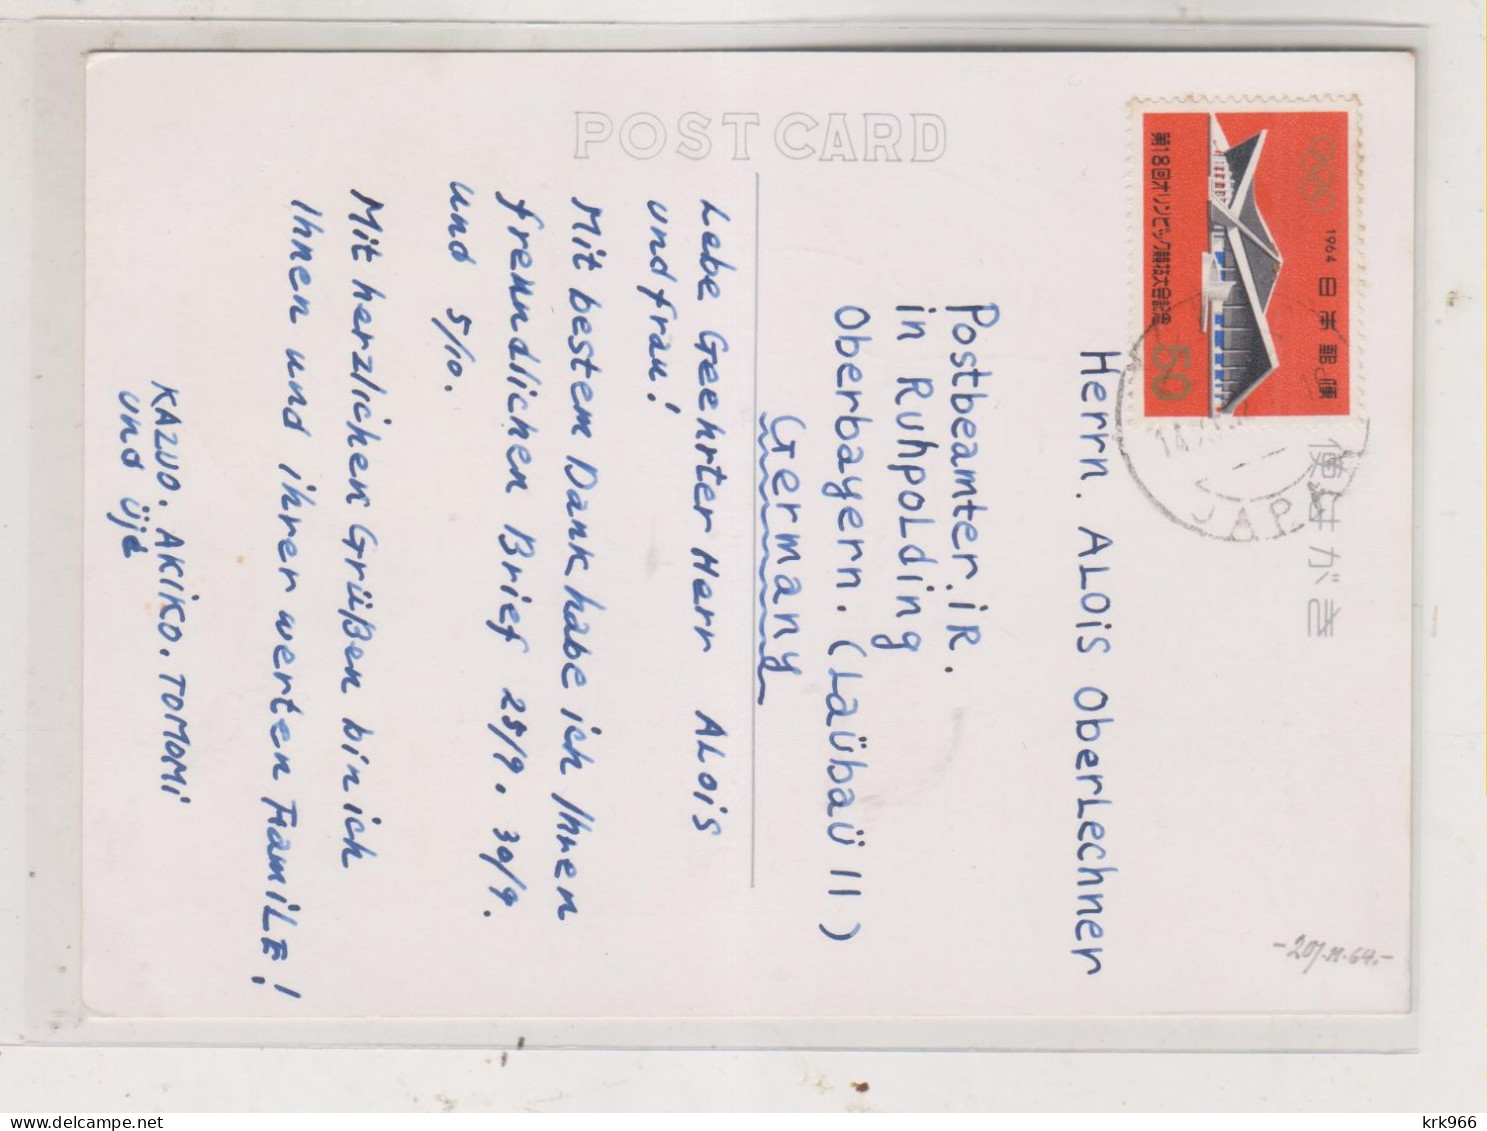 POST CARD
第18回オリンピック競技大会記念
50
1964 日本郵便
便はがき
JAPAN
Herrn. ALOis OberLechner
Postbeamter. iR.
in RuhpoLding
Oberbayern. (Laübaü 11)
Germany
Lebe Geehrter Herr ALois
und frau!
Mit bestem Dank habe ich Ihnen
frenndlichen Brief 25/9. 30/9.
und 5/10.
Mit herzlichen Grüßen bin ich
Ihnen und ihrer werten FamiLE!
KAZUO. AKIKO. TOMOMi
und üjd
krk966